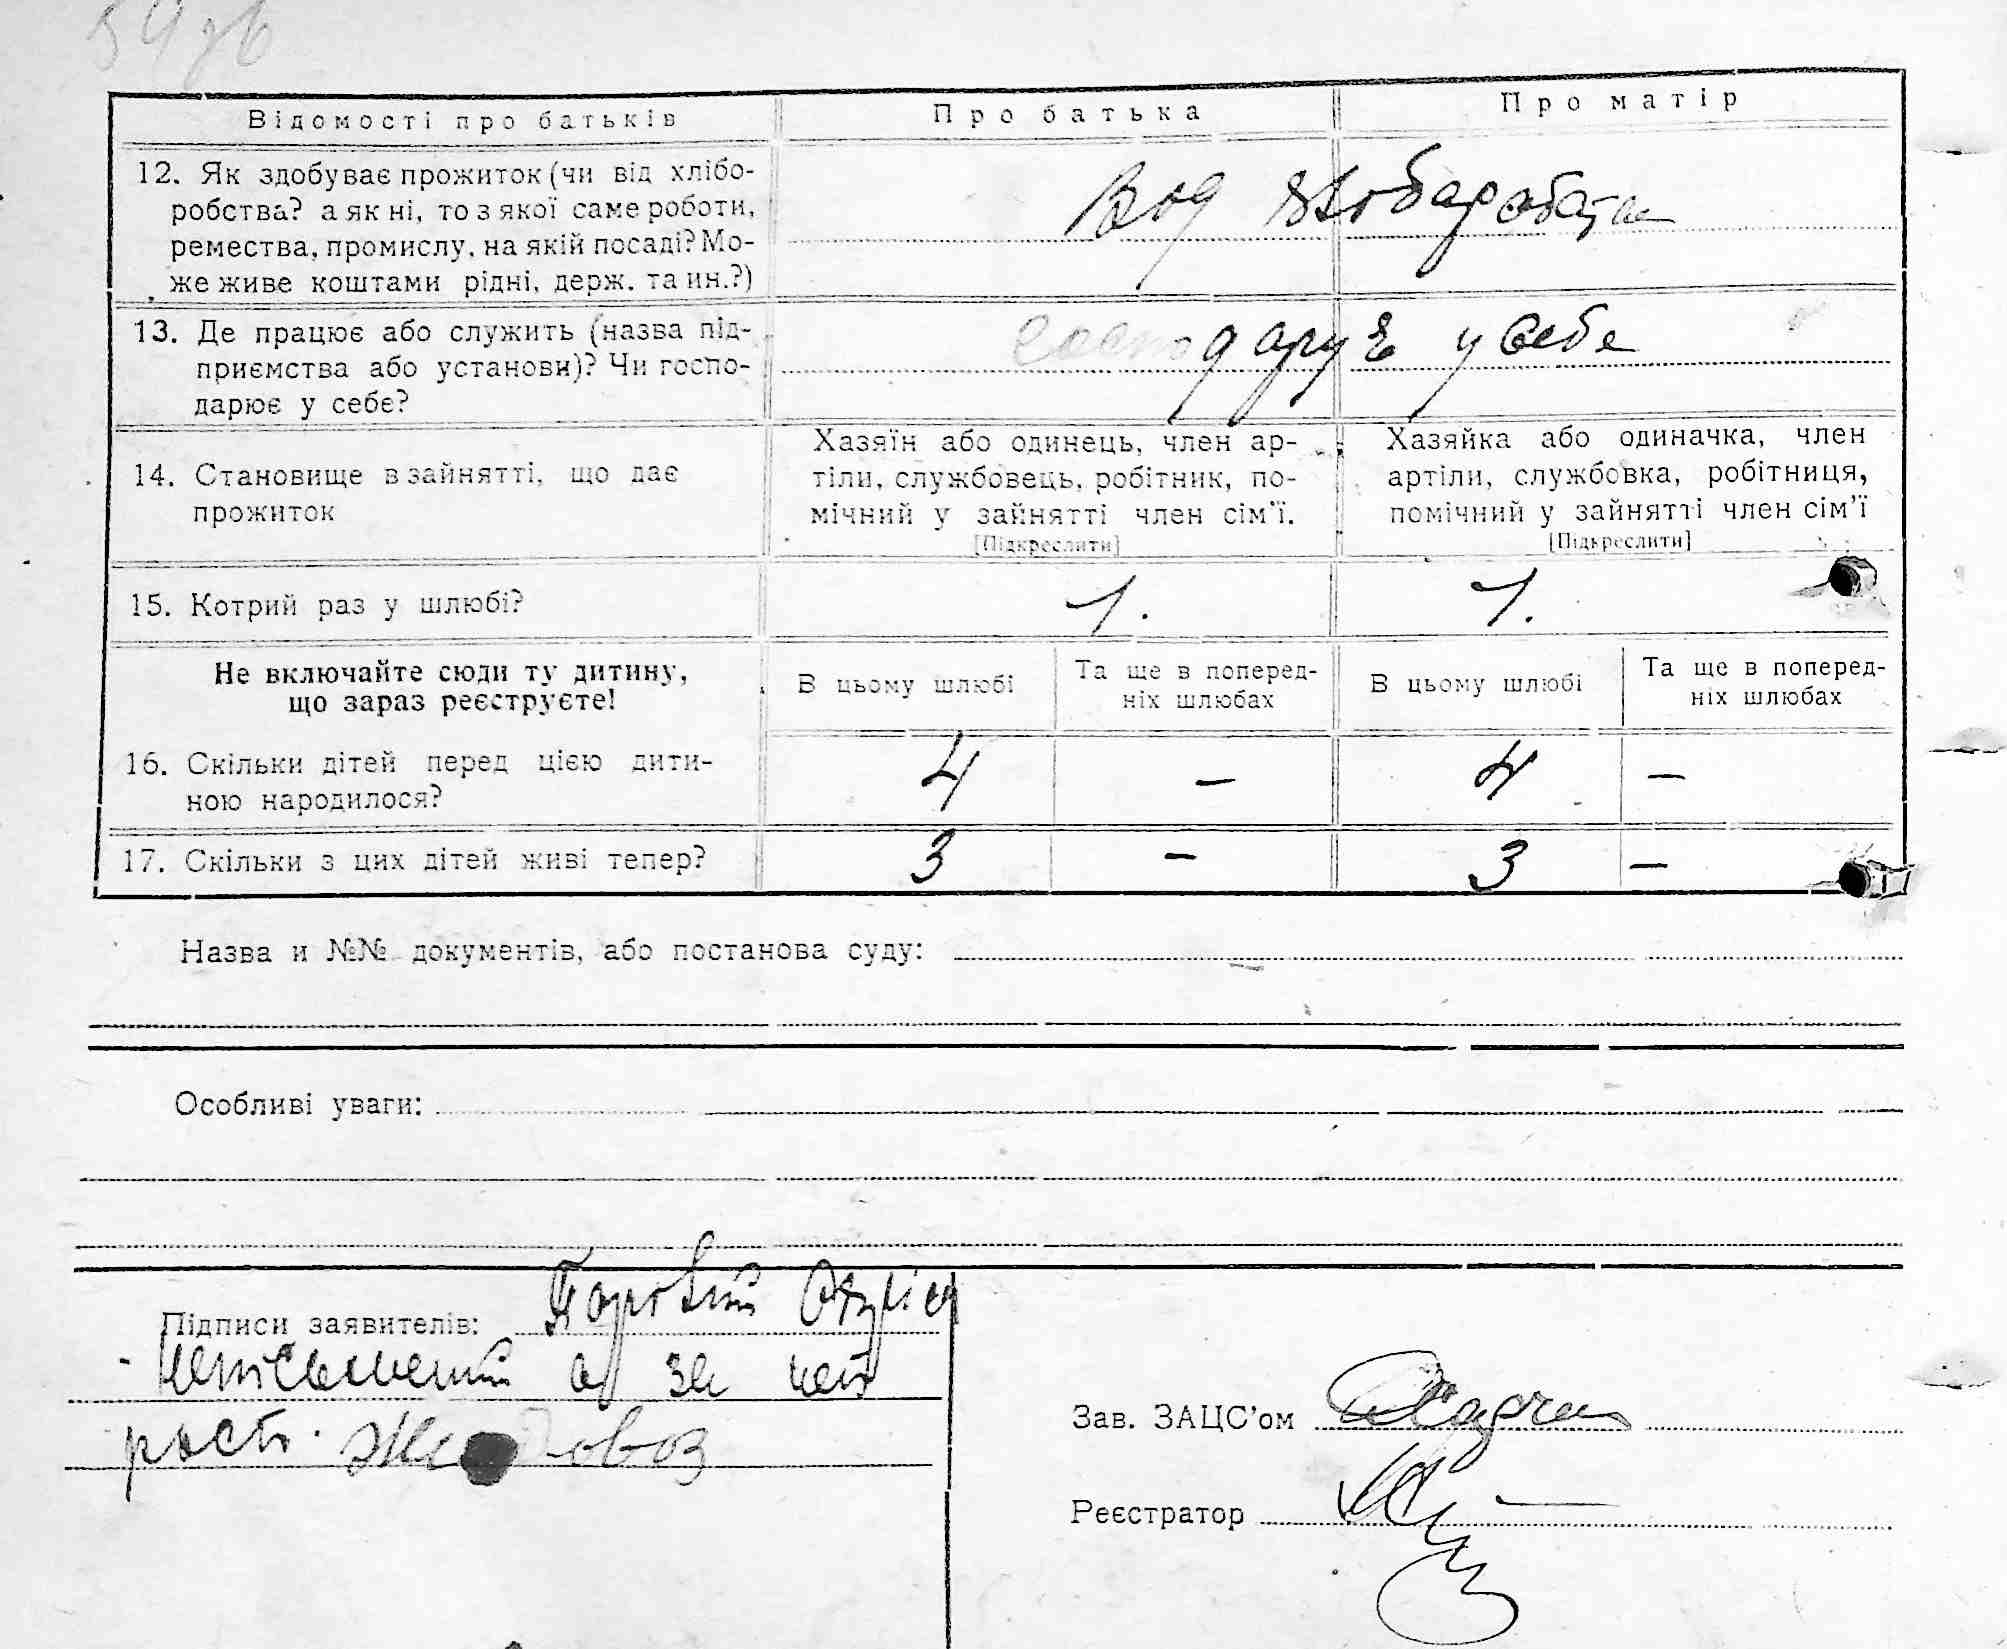 59зв
Відомості про батьків
Про батька
Про матір
12. Як здобуває прожиток (чи від хлібо-
робства? а як ні, то з якої саме роботи,
ремества, промислу, на якій посаді? Мо-
же живе коштами рідні, держ. та ин.?)
13. Де працює або служить (назва під-
приємства або установи)? Чи госпо-
дарює у себе?
господарує у себе
14. Становище в зайнятті, що дає
прожиток
Хазяїн або одинець, член ар-
тіли, службовець, робітник, по-
мічний у зайнятті член сім’ї.
[Підкреслити]
Хазяйка або одиначка, член
артіли, службовка, робітниця,
помічний у зайнятті член сім’ї
[Підкреслити]
15. Котрий раз у шлюбі?
1.
1.
Не включайте сюди ту дитину,
що зараз реєструєте!
В цьому шлюбі
Та ще в поперед-
ніх шлюбах
В цьому шлюбі
Та ще в поперед-
ніх шлюбах
16. Скільки дітей перед цією дити-
ною народилося?
4
–
4
–
17. Скільки з цих дітей живі тепер?
3
–
3
–
Назва и №№ документів, або постанова суду:
Особливі уваги:
Підписи заявителів:
а за
Зав. ЗАЦС’ом
Реєстратор